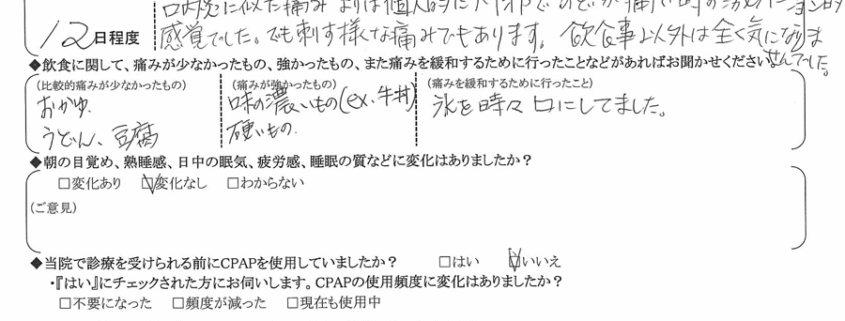 口内炎に似た痛み
12日程度
感覚でした。でも刺す様な痛みでもあります。飲食事以外は全く気になりま
せんでした。
◆飲食に関して、痛みが少なかったもの、強かったもの、また痛みを緩和するために行ったことなどがあればお聞かせください
(比較的痛みが少なかったもの) (痛みが強かったもの) (痛みを緩和するために行ったこと)
おかゆ. 味の濃いもの(ex.牛丼) 氷を時々口にしてました。
うどん、豆腐 硬いもの.
◆朝の目覚め、熟睡感、日中の眠気、疲労感、睡眠の質などに変化はありましたか？
□変化あり ☑変化なし □わからない
(ご意見)
◆当院で診療を受けられる前にCPAPを使用していましたか？ □はい ☑いいえ
・『はい』にチェックされた方にお伺いします。CPAPの使用頻度に変化はありましたか？
□不要になった □頻度が減った □現在も使用中